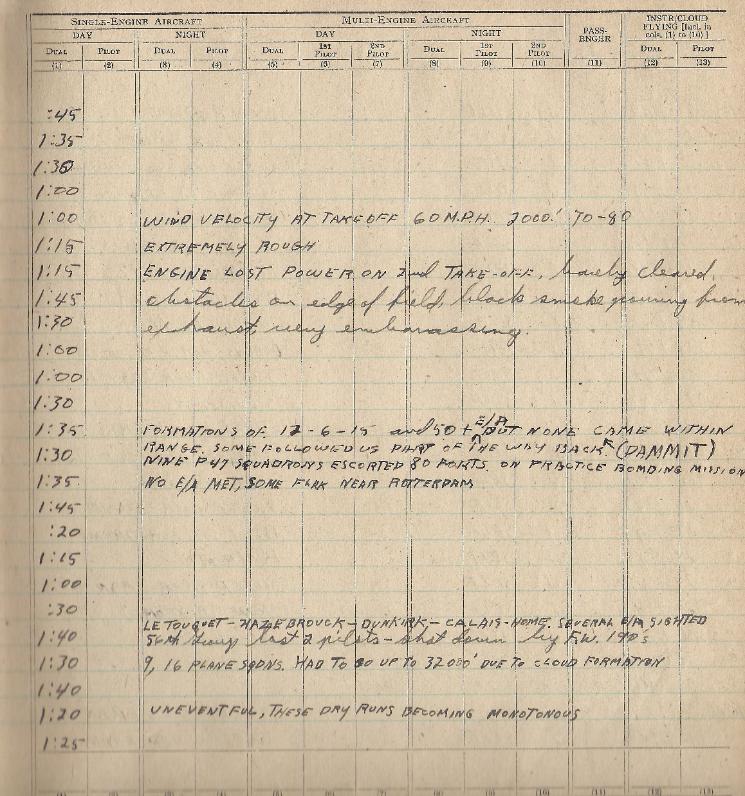 SINGLE-ENGINE AIRCRAFT MULTI-ENGINE AIRCRAFT PASS-ENGER INSTR/CLOUD FLYING [Incl. in cols. (1) to (10)]
DAY NIGHT DAY NIGHT
DUAL PILOT DUAL PILOT DUAL 1ST PILOT 2ND PILOT DUAL 1ST PILOT 2ND PILOT DUAL PILOT
(1) (2) (3) (4) (5) (6) (7) (8) (9) (10) (11) (12) (13)
:45
1:35
1:30
1:00
1:00 WIND VELOCITY AT TAKEOFF 60 M.P.H. 2000' 70-80
1:15 EXTREMELY ROUGH
1:15 ENGINE LOST POWER ON 2nd TAKE-OFF, barely cleared
1:45 obstacles on edge of field, black smoke pouring from
1:30 exhaust, very embarassing.
1:00
1:00
1:30
1:35 FORMATIONS OF 12-6-15 and 50+ E/A BUT NONE CAME WITHIN
RANGE. SOME FOLLOWED US PART OF THE WAY BACK. (DAMMIT)
1:30 NINE P47 SQUADRONS ESCORTED 80 FORTS. ON PRACTICE BOMBING MISSION
1:35 NO E/A MET, SOME FLAK NEAR ROTTERDAM
1:45
:20
1:15
1:00
:30
LE TOUQUET - HAZEBROUCK - DUNKIRK - CALAIS - HOME. SEVERAL E/A SIGHTED
1:40 56th Group lost 2 pilots - shot down by F.W. 190's
1:30 9, 16 PLANE SQDNS. HAD TO GO UP TO 32000' DUE TO CLOUD FORMATION
1:40
1:20 UNEVENTFUL, THESE DRY RUNS BECOMING MONOTONOUS
1:25